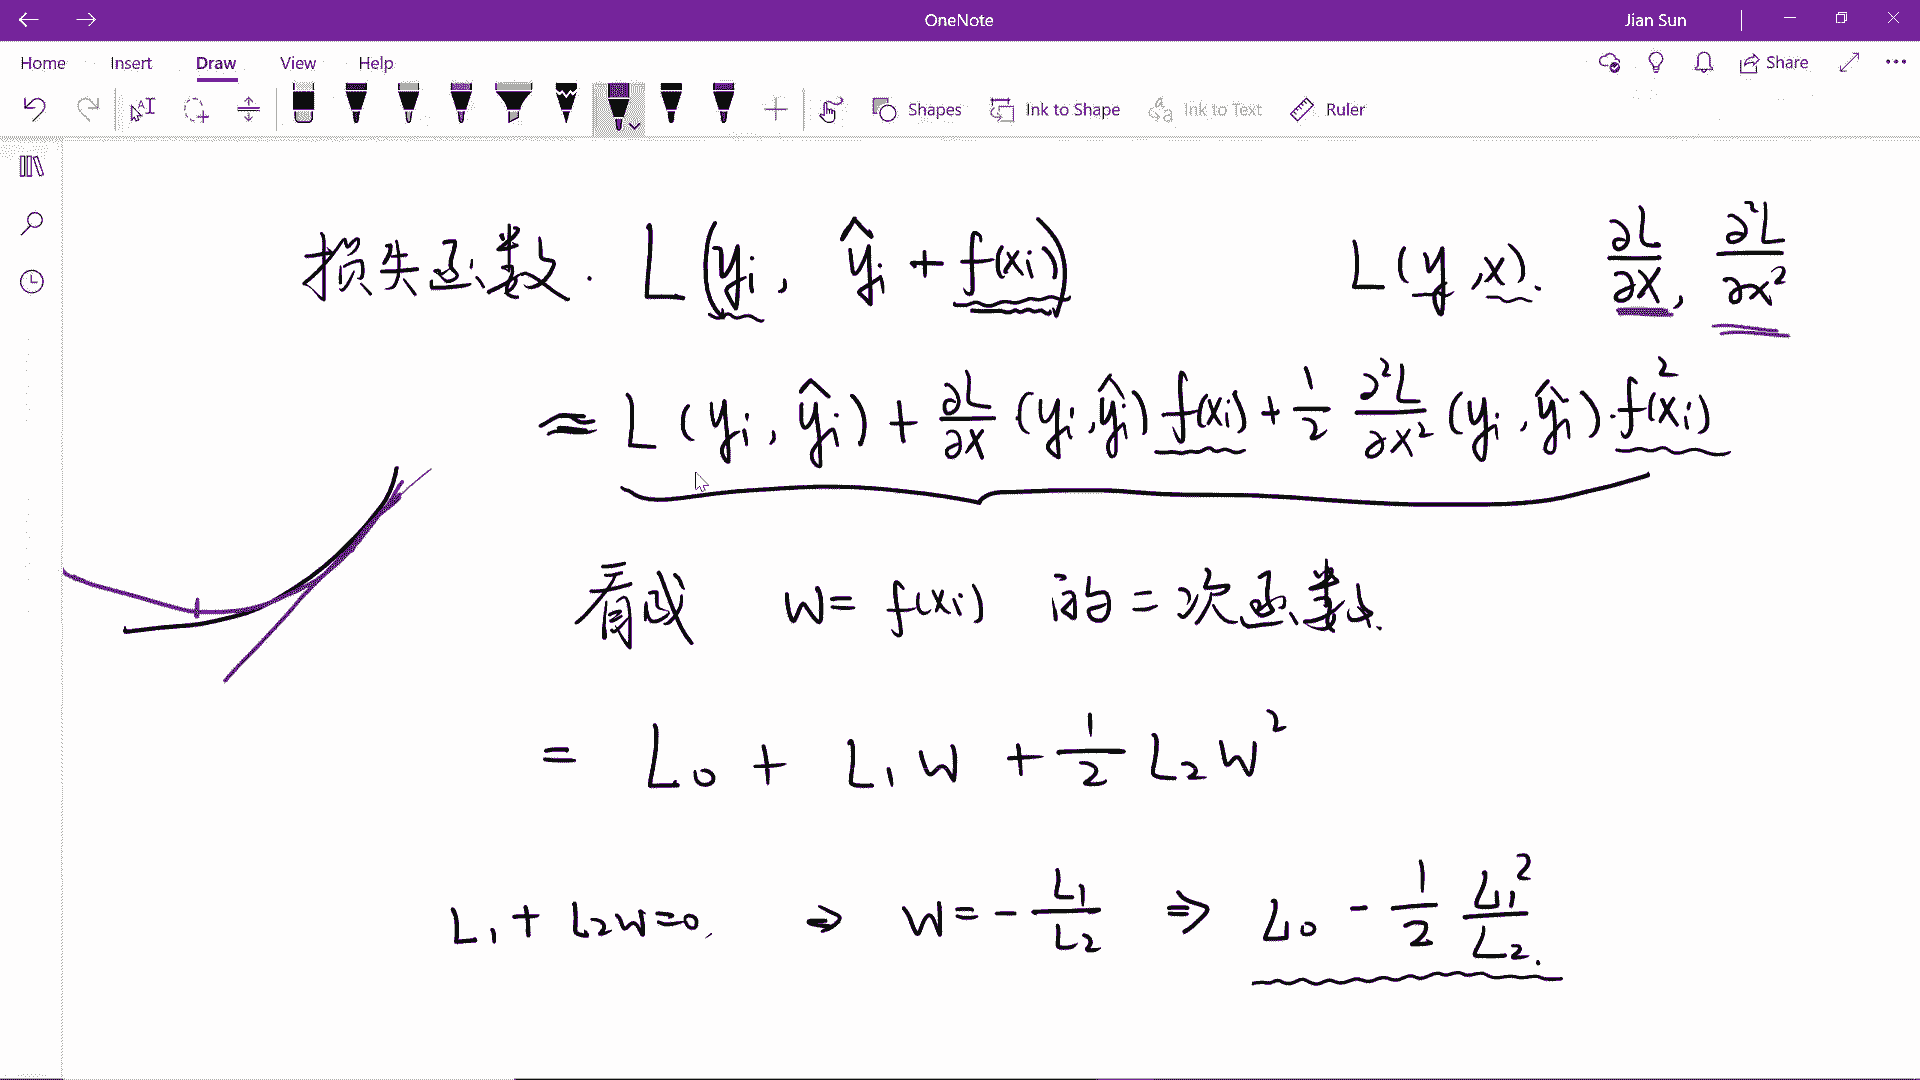 OneNote
Jian Sun
Home Insert Draw View Help
Share
Shapes Ink to Shape Ink to Text Ruler
损失函数. L(yi, ŷi + f(xi)) L(y,x). ∂L/∂x, ∂²L/∂x²
≈ L(yi, ŷi) + ∂L/∂x (yi,ŷi) f(xi) + 1/2 ∂²L/∂x² (yi,ŷi)·f²(xi)
看成 w= f(xi) 的二次函数.
= L₀ + L₁w + 1/2 L₂w²
L₁ + L₂w=0, → w= - L₁/L₂ ⇒ L₀ - 1/2 L₁²/L₂.